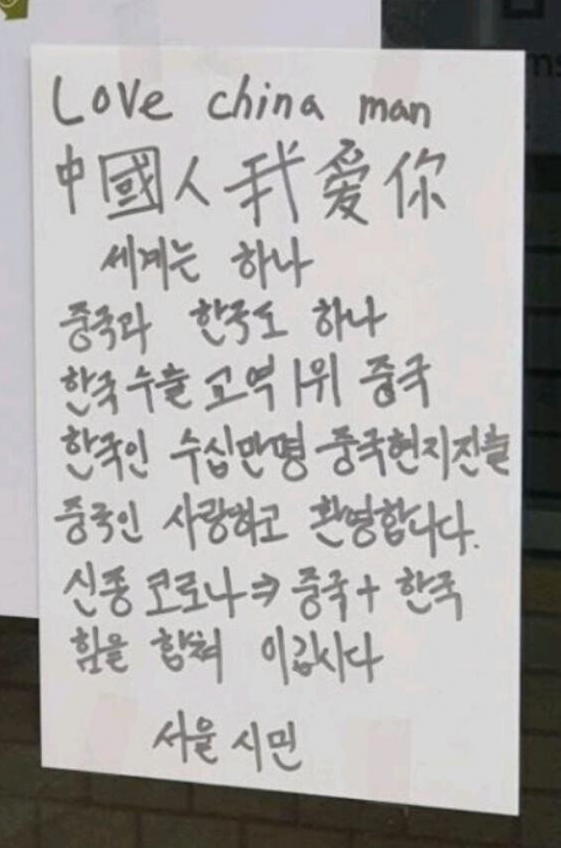 Love china man
中國人 我爱你
세계는 하나
중국과 한국도 하나
한국 수출 교역 1위 중국
한국인 수십만명 중국현지진출
중국인 사랑하고 환영합니다.
신종 코로나⇒ 중국+ 한국
힘을 합쳐 이깁시다
서울 시민